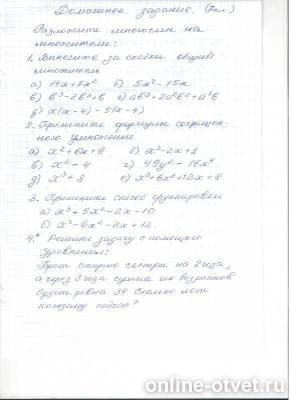 Домашнее задание. (7кл)
Разложите многочлен на
множители:
1. Вынесите за скобки общий
множитель
а) 14x+7x² б) 5x²-15x
в) b³-2b²+b г) ab³+2a²b²+a³b
д) x(x-4)-5(x-4)
2. Примените формулы сокращен-
ного умножения
а) x²+6x+9 б) x²-2x+1
в) x²-4 г) 49y²-16x⁴
д) x³+8 е) x³+6x²+12x+8
3. Примените способ группировки
а) x³+5x²-2x-10
б) x³-6x²-2x+12.
4.* Решите задачу с помощью
уравнения:
Брат старше сестры на 2 года,
а через 3 года сумма их возрастов
будет равна 34. Сколько лет
каждому сейчас?
online-otvet.ru